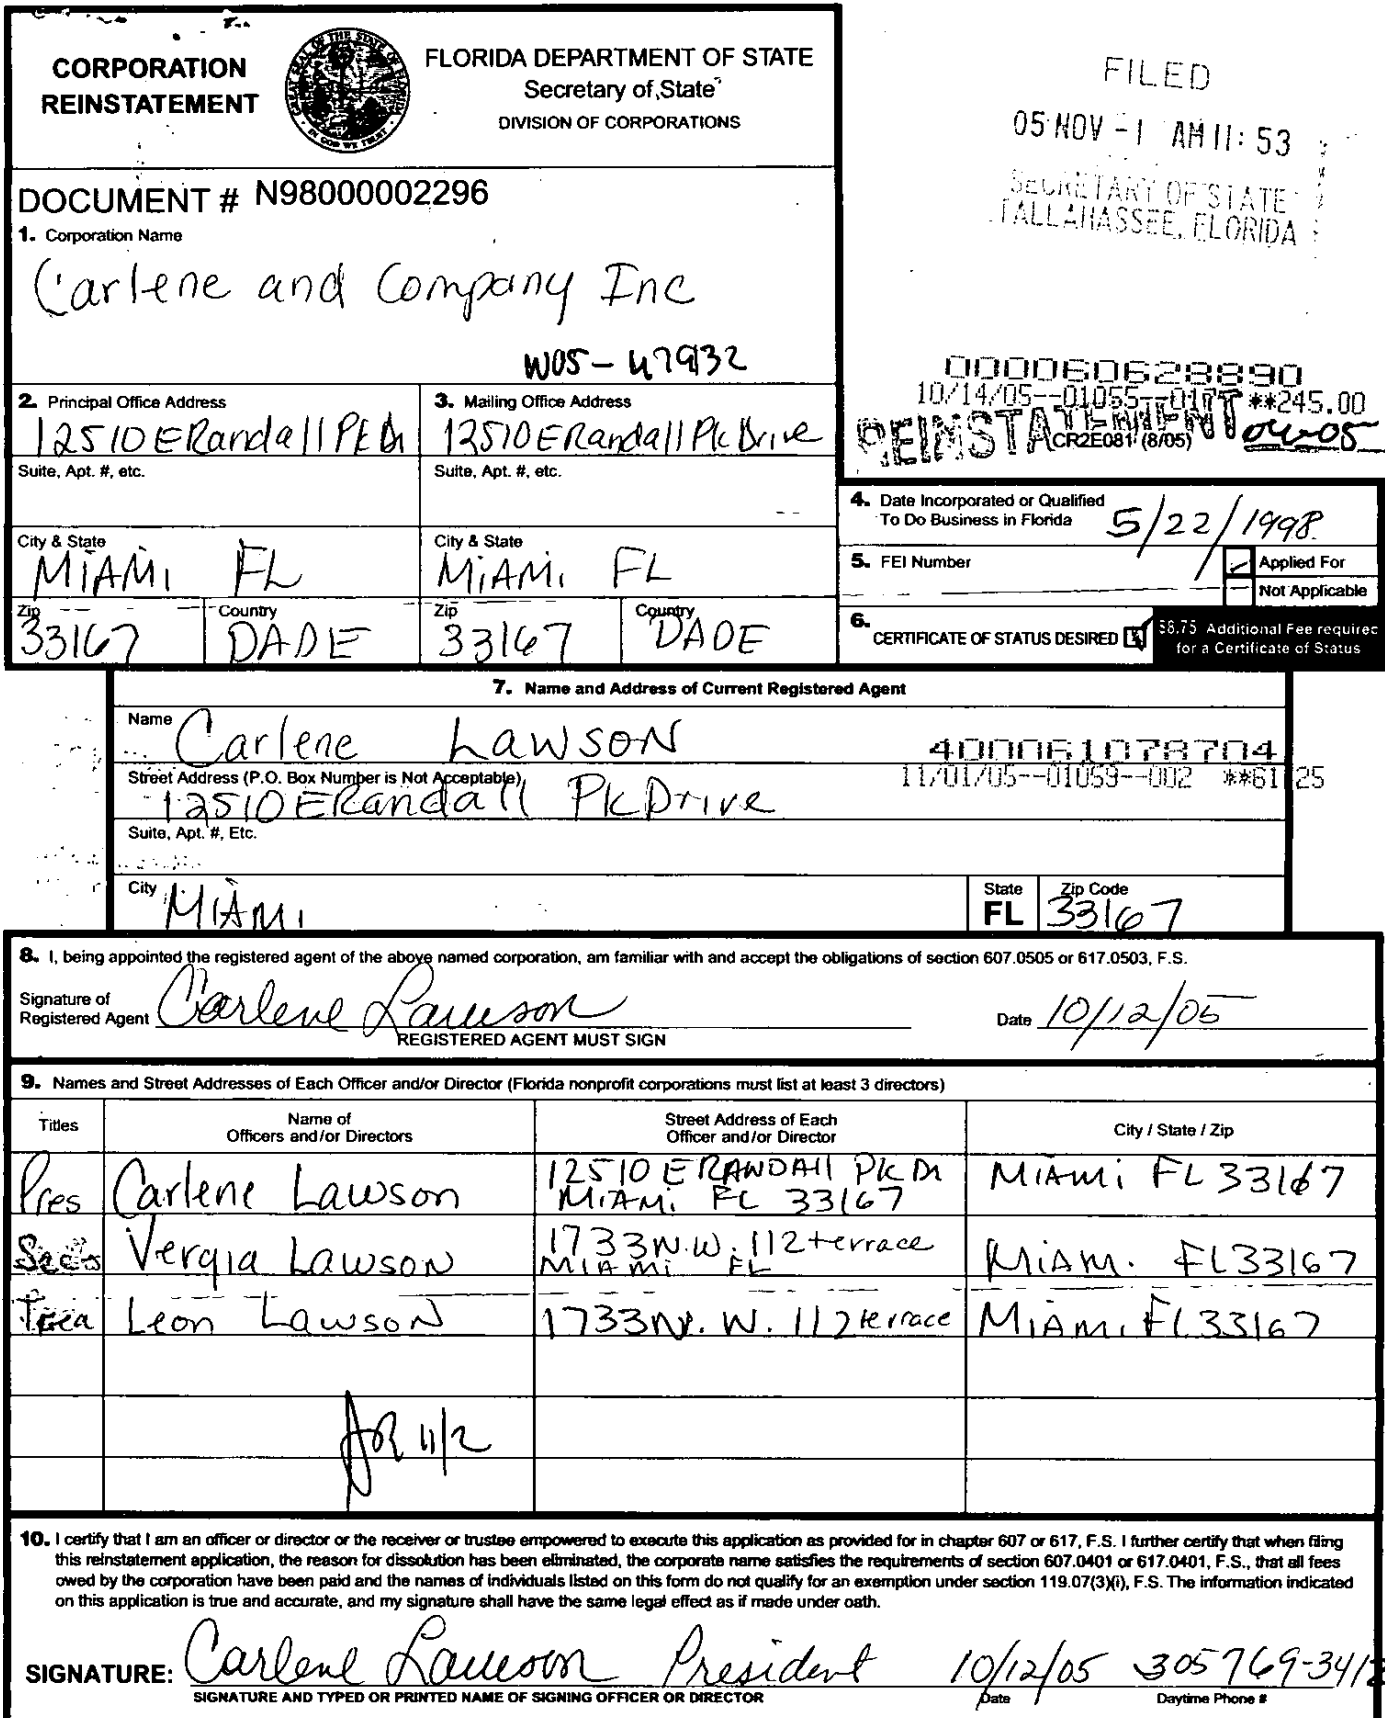 CORPORATION
REINSTATEMENT
GREAT SEAL OF THE STATE OF FLORIDA
IN GOD WE TRUST
FLORIDA DEPARTMENT OF STATE
Secretary of State
DIVISION OF CORPORATIONS
FILED
05 NOV -1 AM 11:53
SECRETARY OF STATE
TALLAHASSEE, FLORIDA
DOCUMENT # N98000002296
1. Corporation Name
Carlene and Company Inc
W05-47932
000060628890
10/14/05--01055--017 **245.00
REINSTATEMENT
CR2E081 (8/05)
2. Principal Office Address
12510 E Randall Pk Dr
3. Mailing Office Address
12510 E Randall Pk Drive
Suite, Apt. #, etc.
Suite, Apt. #, etc.
4. Date Incorporated or Qualified
To Do Business in Florida 5/22/1998
City & State
MIAMI FL
City & State
MIAMI FL
5. FEI Number
Applied For
Not Applicable
Zip
33167
Country
DADE
Zip
33167
Country
DADE
6. CERTIFICATE OF STATUS DESIRED
$8.75 Additional Fee required
for a Certificate of Status
7. Name and Address of Current Registered Agent
Name Carlene Lawson
400061078704
11/01/05--01059--002 **61.25
Street Address (P.O. Box Number is Not Acceptable)
12510 E Randall Pk Drive
Suite, Apt. #, Etc.
City MIAMI
State
FL
Zip Code
33167
8. I, being appointed the registered agent of the above named corporation, am familiar with and accept the obligations of section 607.0505 or 617.0503, F.S.
Signature of
Registered Agent Carlene Lawson
REGISTERED AGENT MUST SIGN
Date 10/12/05
9. Names and Street Addresses of Each Officer and/or Director (Florida nonprofit corporations must list at least 3 directors)
Titles
Name of
Officers and/or Directors
Street Address of Each
Officer and/or Director
City / State / Zip
Pres Carlene Lawson 12510 E RANDAll PK Dr MIAMI FL 33167
MIAMI FL 33167
Vergia Lawson 1733 N.W. 112 terrace MIAM. FL 33167
MIAMI FL
Trea Leon Lawson 1733 N.W. 112 terrace MIAMI Fl 33167
11/2
10. I certify that I am an officer or director or the receiver or trustee empowered to execute this application as provided for in chapter 607 or 617, F.S. I further certify that when filing
this reinstatement application, the reason for dissolution has been eliminated, the corporate name satisfies the requirements of section 607.0401 or 617.0401, F.S., that all fees
owed by the corporation have been paid and the names of individuals listed on this form do not qualify for an exemption under section 119.07(3)(i), F.S. The information indicated
on this application is true and accurate, and my signature shall have the same legal effect as if made under oath.
SIGNATURE: Carlene Lawson President 10/12/05 305 769-3412
SIGNATURE AND TYPED OR PRINTED NAME OF SIGNING OFFICER OR DIRECTOR
Date
Daytime Phone #